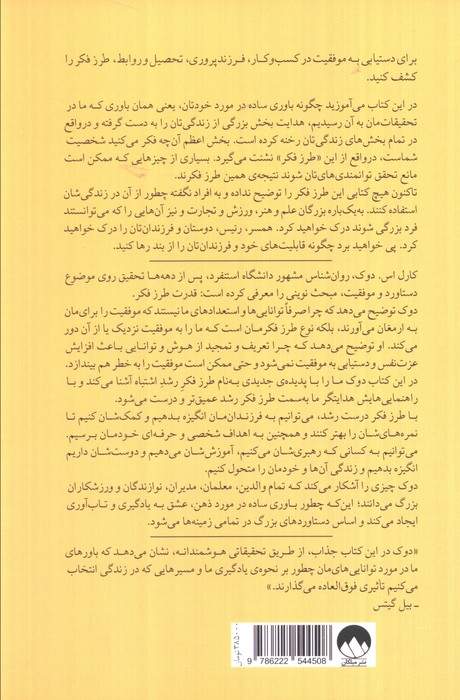 برای دستیابی به موفقیت در کسب‌وکار، فرزندپروری، تحصیل و روابط، طرز فکر را
کشف کنید.
در این کتاب می‌آموزید چگونه باوری ساده در مورد خودتان، یعنی همان باوری که ما در
تحقیقات‌مان به آن رسیدیم، هدایت بخش بزرگی از زندگی‌تان را به دست گرفته و درواقع
در تمام بخش‌های زندگی‌تان رخنه کرده است. بخش اعظم آن‌چه فکر می‌کنید شخصیت
شماست، درواقع از این «طرز فکر» نشئت می‌گیرد. بسیاری از چیزهایی که ممکن است
مانع تحقق توانمندی‌های‌تان شوند نتیجه‌ی همین طرز فکرند.
تاکنون هیچ کتابی این طرز فکر را توضیح نداده و به افراد نگفته چطور از آن در زندگی‌شان
استفاده کنند. به‌یک‌باره بزرگان علم و هنر، ورزش و تجارت و نیز آن‌هایی را که می‌توانستند
فرد بزرگی شوند درک خواهید کرد. همسر، رئیس، دوستان و فرزندان‌تان را درک خواهید
کرد. پی خواهید برد چگونه قابلیت‌های خود و فرزندان‌تان را از بند رها کنید.
کارل اس. دوک، روان‌شناس مشهور دانشگاه استنفرد، پس از دهه‌ها تحقیق روی موضوع
دستاورد و موفقیت، مبحث نوینی را معرفی کرده است: قدرت طرز فکر.
دوک توضیح می‌دهد که چرا صرفاً توانایی‌ها و استعدادهای ما نیستند که موفقیت را برای‌مان
به ارمغان می‌آورند، بلکه نوع طرز فکرمان است که ما را به موفقیت نزدیک یا از آن دور
می‌کند. او توضیح می‌دهد کـه چـرا تعریف و تمجید از هوش و توانایی باعث افزایش
عزت‌نفس و دستیابی به موفقیت نمی‌شود و حتی ممکن است موفقیت را به خطر هم بیندازد.
در این کتاب دوک ما را با پدیده‌ی جدیدی به‌نام طرز فکرِ رشدِ اشتباه آشنا می‌کند و با
راهنمایی‌هایش هدایتگر ما به‌سمت طرز فکر رشد عمیق‌تر و درست می‌شود.
با طرز فکر درست رشد، می‌توانیم به فرزندان‌مان انگیزه بدهیم و کمک‌شان کنیم تا
نمره‌های‌شان را بهتر کنند و همچنین به اهداف شخصی و حرفه‌ای خودمان برسیم.
می‌توانیم به کسانی که رهبری‌شان می‌کنیم، آموزش‌شان می‌دهیم و دوست‌شان داریم
انگیزه بدهیم و زندگی آن‌ها و خودمان را متحول کنیم.
دوک چیزی را آشکار می‌کند که تمام والدین، معلمان، مدیران، نوازندگان و ورزشکاران
بزرگ می‌دانند؛ این‌که چطور باوری ساده در مورد ذهن، عشق به یادگیری و تاب‌آوری
ایجاد می‌کند و اساس دستاوردهای بزرگ در تمامی زمینه‌ها می‌شود.
«دوک در این کتاب جذاب، از طریق تحقیقاتی هوشمندانه، نشان می‌دهد که باورهای
ما در مورد توانایی‌های‌مان چطور بر نحوه‌ی یادگیری ما و مسیرهایی که در زندگی انتخاب
می‌کنیم تأثیری فوق‌العاده می‌گذارند.»
ـ بیل گیتس
۳۸۵۰۰۰ تومان
9 786222 544508
نشر میلکان